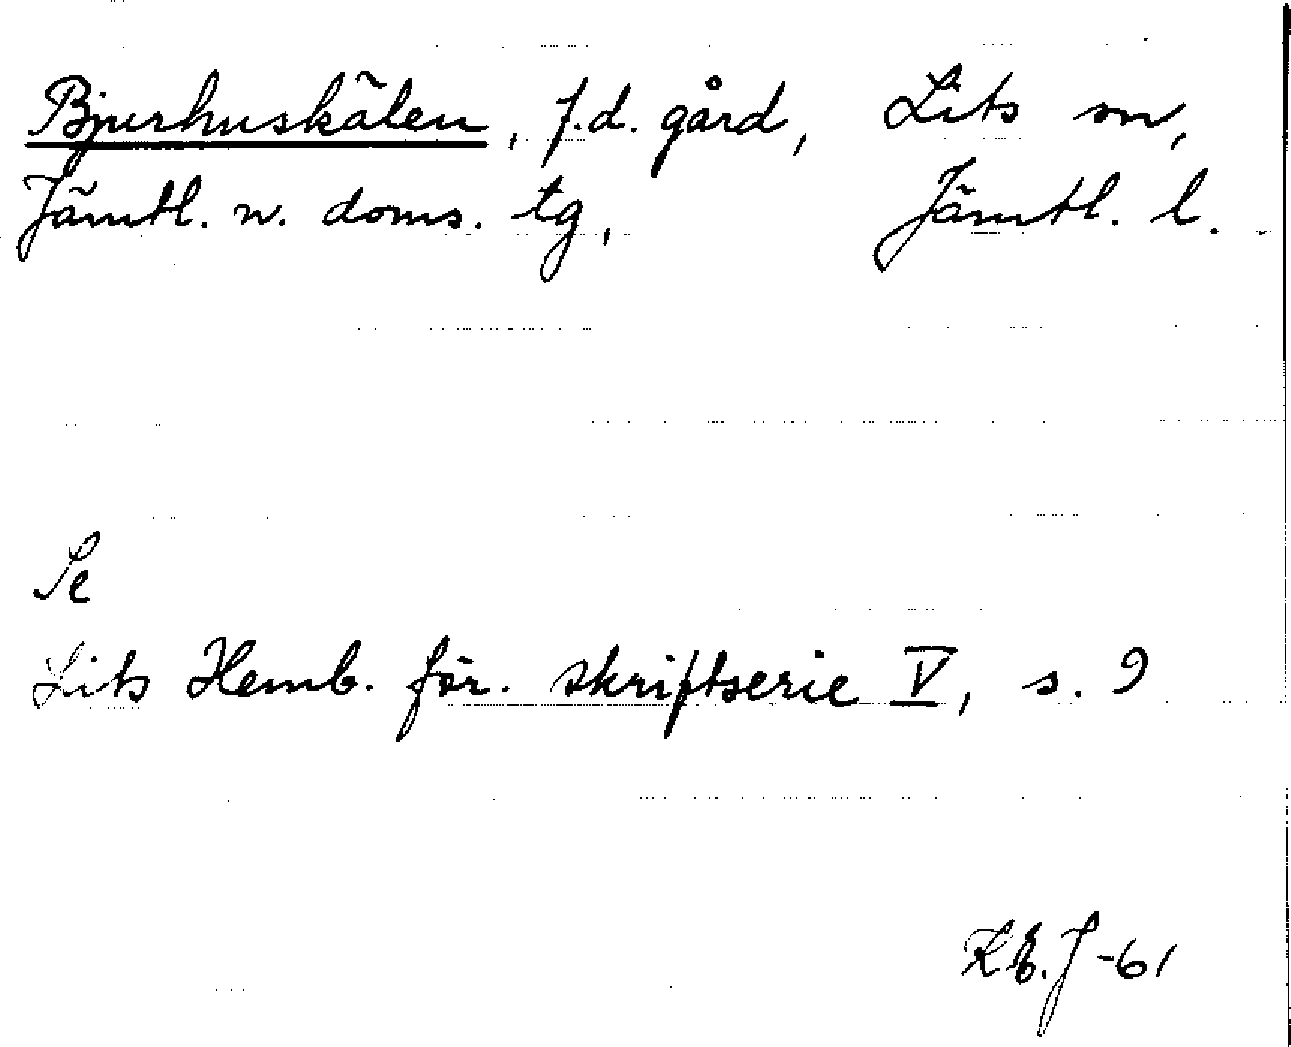 Bjurhuskälen, f.d. gård, Lits sn,
Jämtl. n. doms. tg, Jämtl. l.
Se
Lits Hemb. för. skriftserie V, s. 9
K.E.J-61